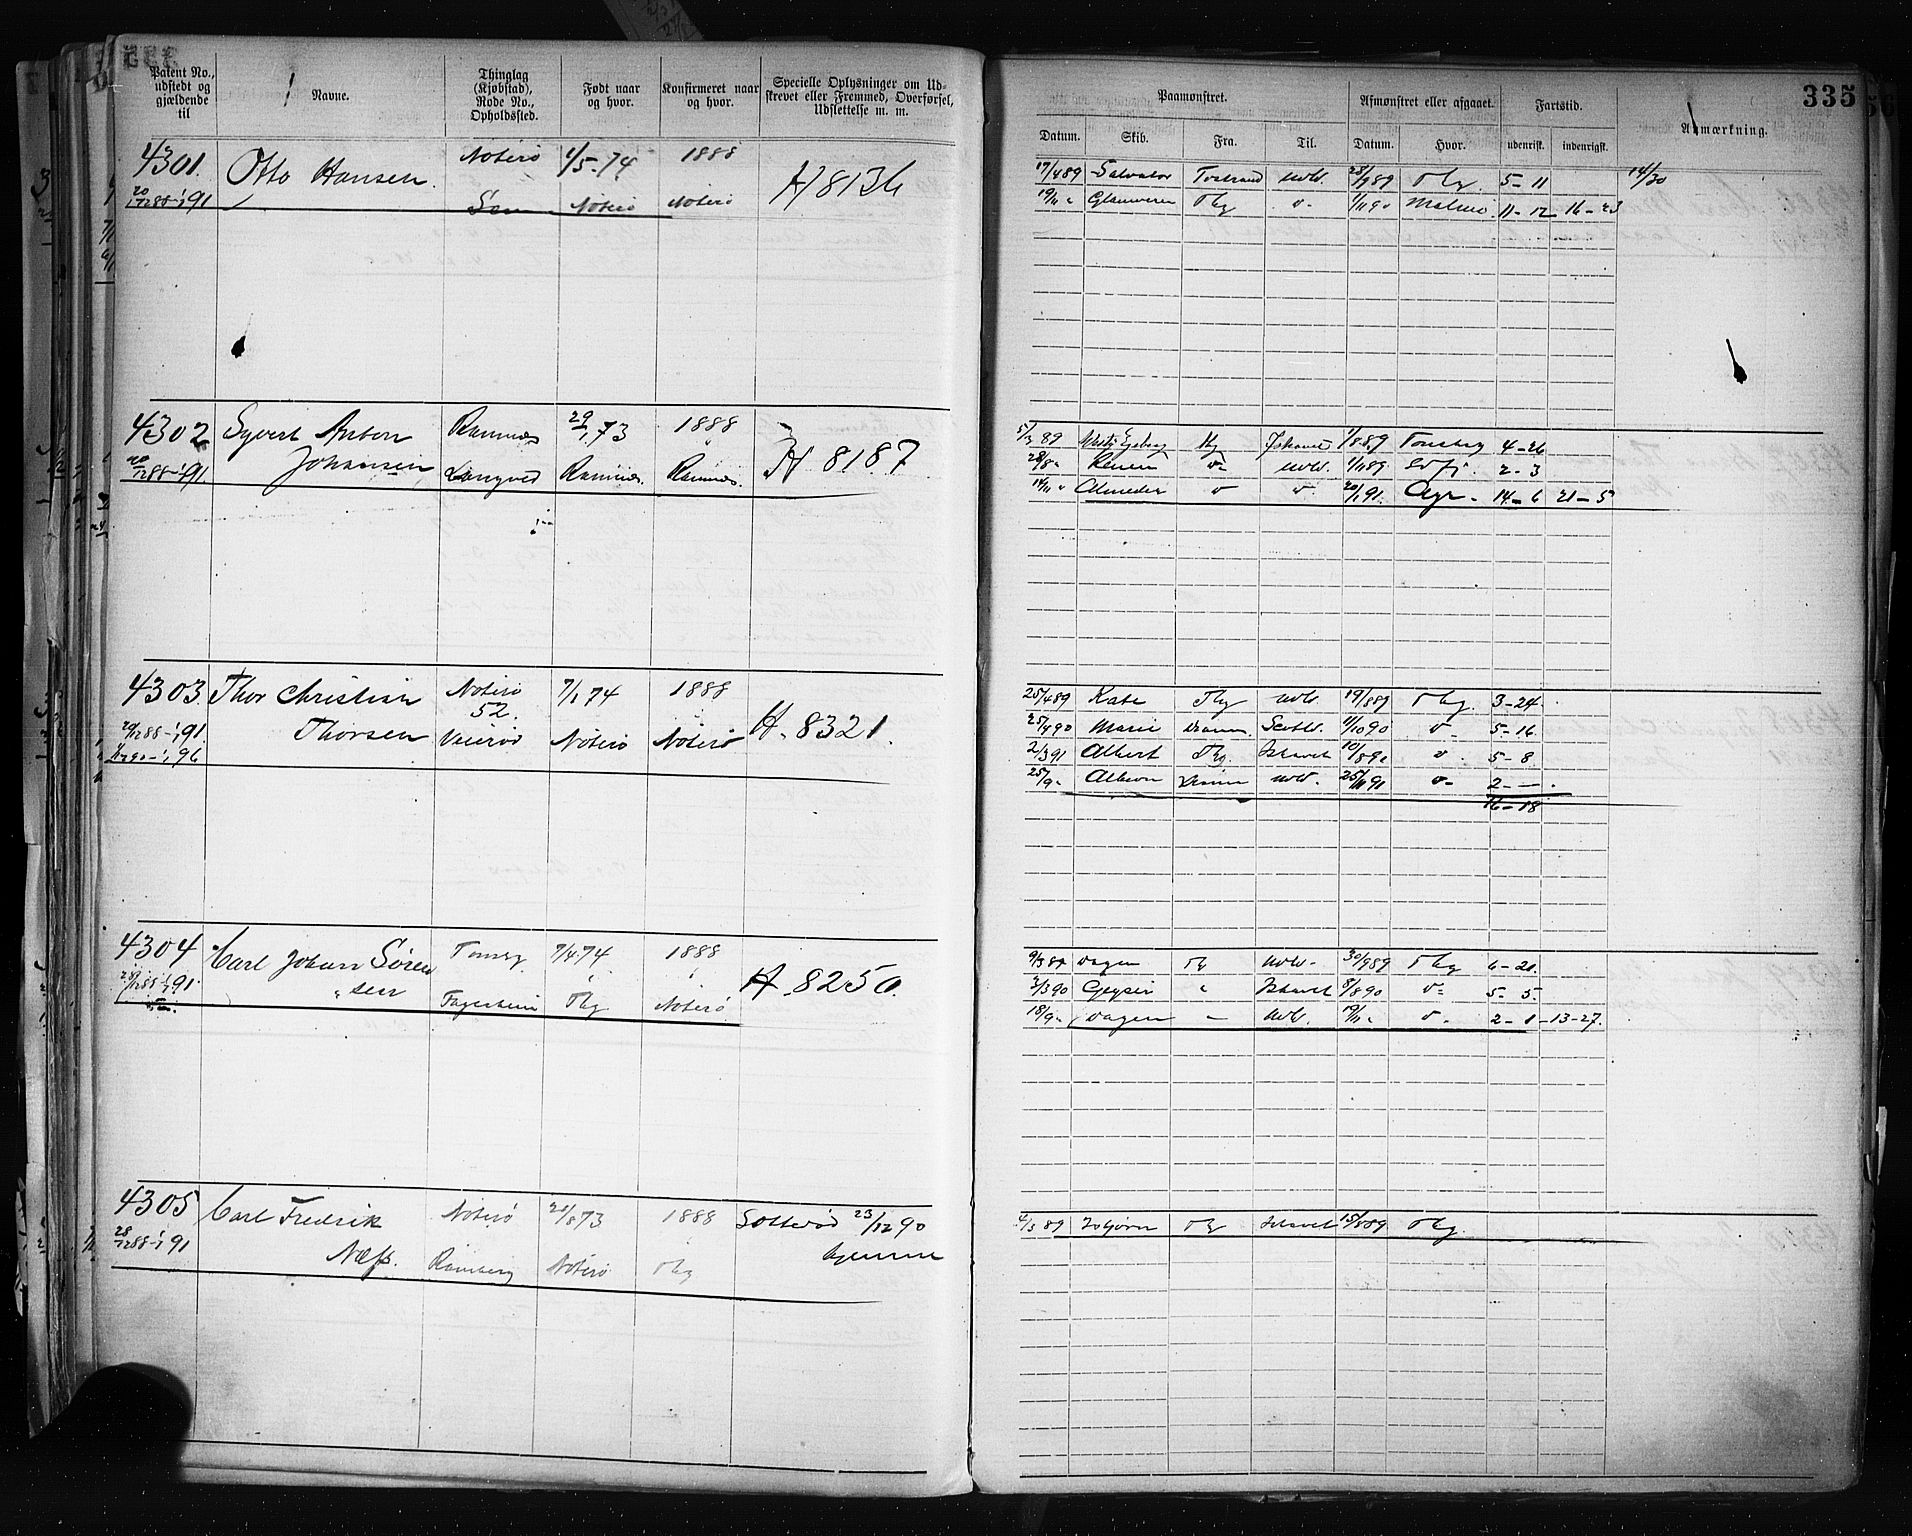 335
Patent No., udstedt og gjældende til
Navne.
Thinglag (Kjøbstad), Rode No., Opholdssted.
Født naar og hvor.
Konfirmeret naar og hvor.
Specielle Oplysninger om Udskrevet eller Fremmed, Overførsel, Udslettelse m. m.
Paamønstret.
Afmønstret eller afgaaet.
Fartstid.
Anmærkning.
Datum. Skib. Fra. Til. Datum. Hvor. udenrigsk. indenrigsk.
4301. Otto Hansen. Nøterø 1/5-74 1888 H 8136
20/12 88-1/1 91 Sem Nøterø Nøterø
17/4 89 Salvator Tostrand udl. 28/9 89 Tbg. 5-11 14/30
19/11 " Tbg v. 1/11 90 Malmö 11-12 16-23
4302 Syvert Anton Johansen Ramnæs 29/1 73 1888 H 8187
20/12 88-1/1 91 Langved Ramnæs. Ramnæs.
5/3 89 Tbg Ishavet 1/8 89 Tønsberg 4-26
28/8 " v- udl. 1/11 89 2-3
14/11 " Almeder v v. 20/1 91. Agr. 14-6 21-5
4303. Thor Christian Thorsen Nøterø 52. 7/1 74 1888 H. 8321.
20/12 88-1/1 91 Veierød Nøterø Nøterø
-1/1 96
25/4 89 Kate Tbg udl. 19/8 89 Tbg. 3-24.
25/4 90 Marie Dram. Scotl. 1/10 90 v- 5-16.
2/3 91 Albert Tbg. Ishavet 10/8 9" v. 5-8
25/9 " Albion Dram udl. 25/11 91 v- 2-—.
16-18
4304 Carl Johan Søren"sen Tønsbg 7/4 74 1888 H. 8250.
20/12 88-1/1 91. Fagerheim Tbg Nøterø
9/3 89 Dagen Tbg Udl. 30/9 89 Tbg 6-21.
2/3 90 Geysir " Ishavet 8/8 90 v- 5-5.
18/9 " Dagen " Udl. 19/11 " v. 2-1-13-27.
4305 Carl Fredrik Næss. Nøterø 20/8 73 1888 23/12 90
28/12 88-1/1 91 Ramberg Nøterø Tbg hjemme
2/3 89 Isbjørn Tbg Ishavet 15/8 89 Tbg.